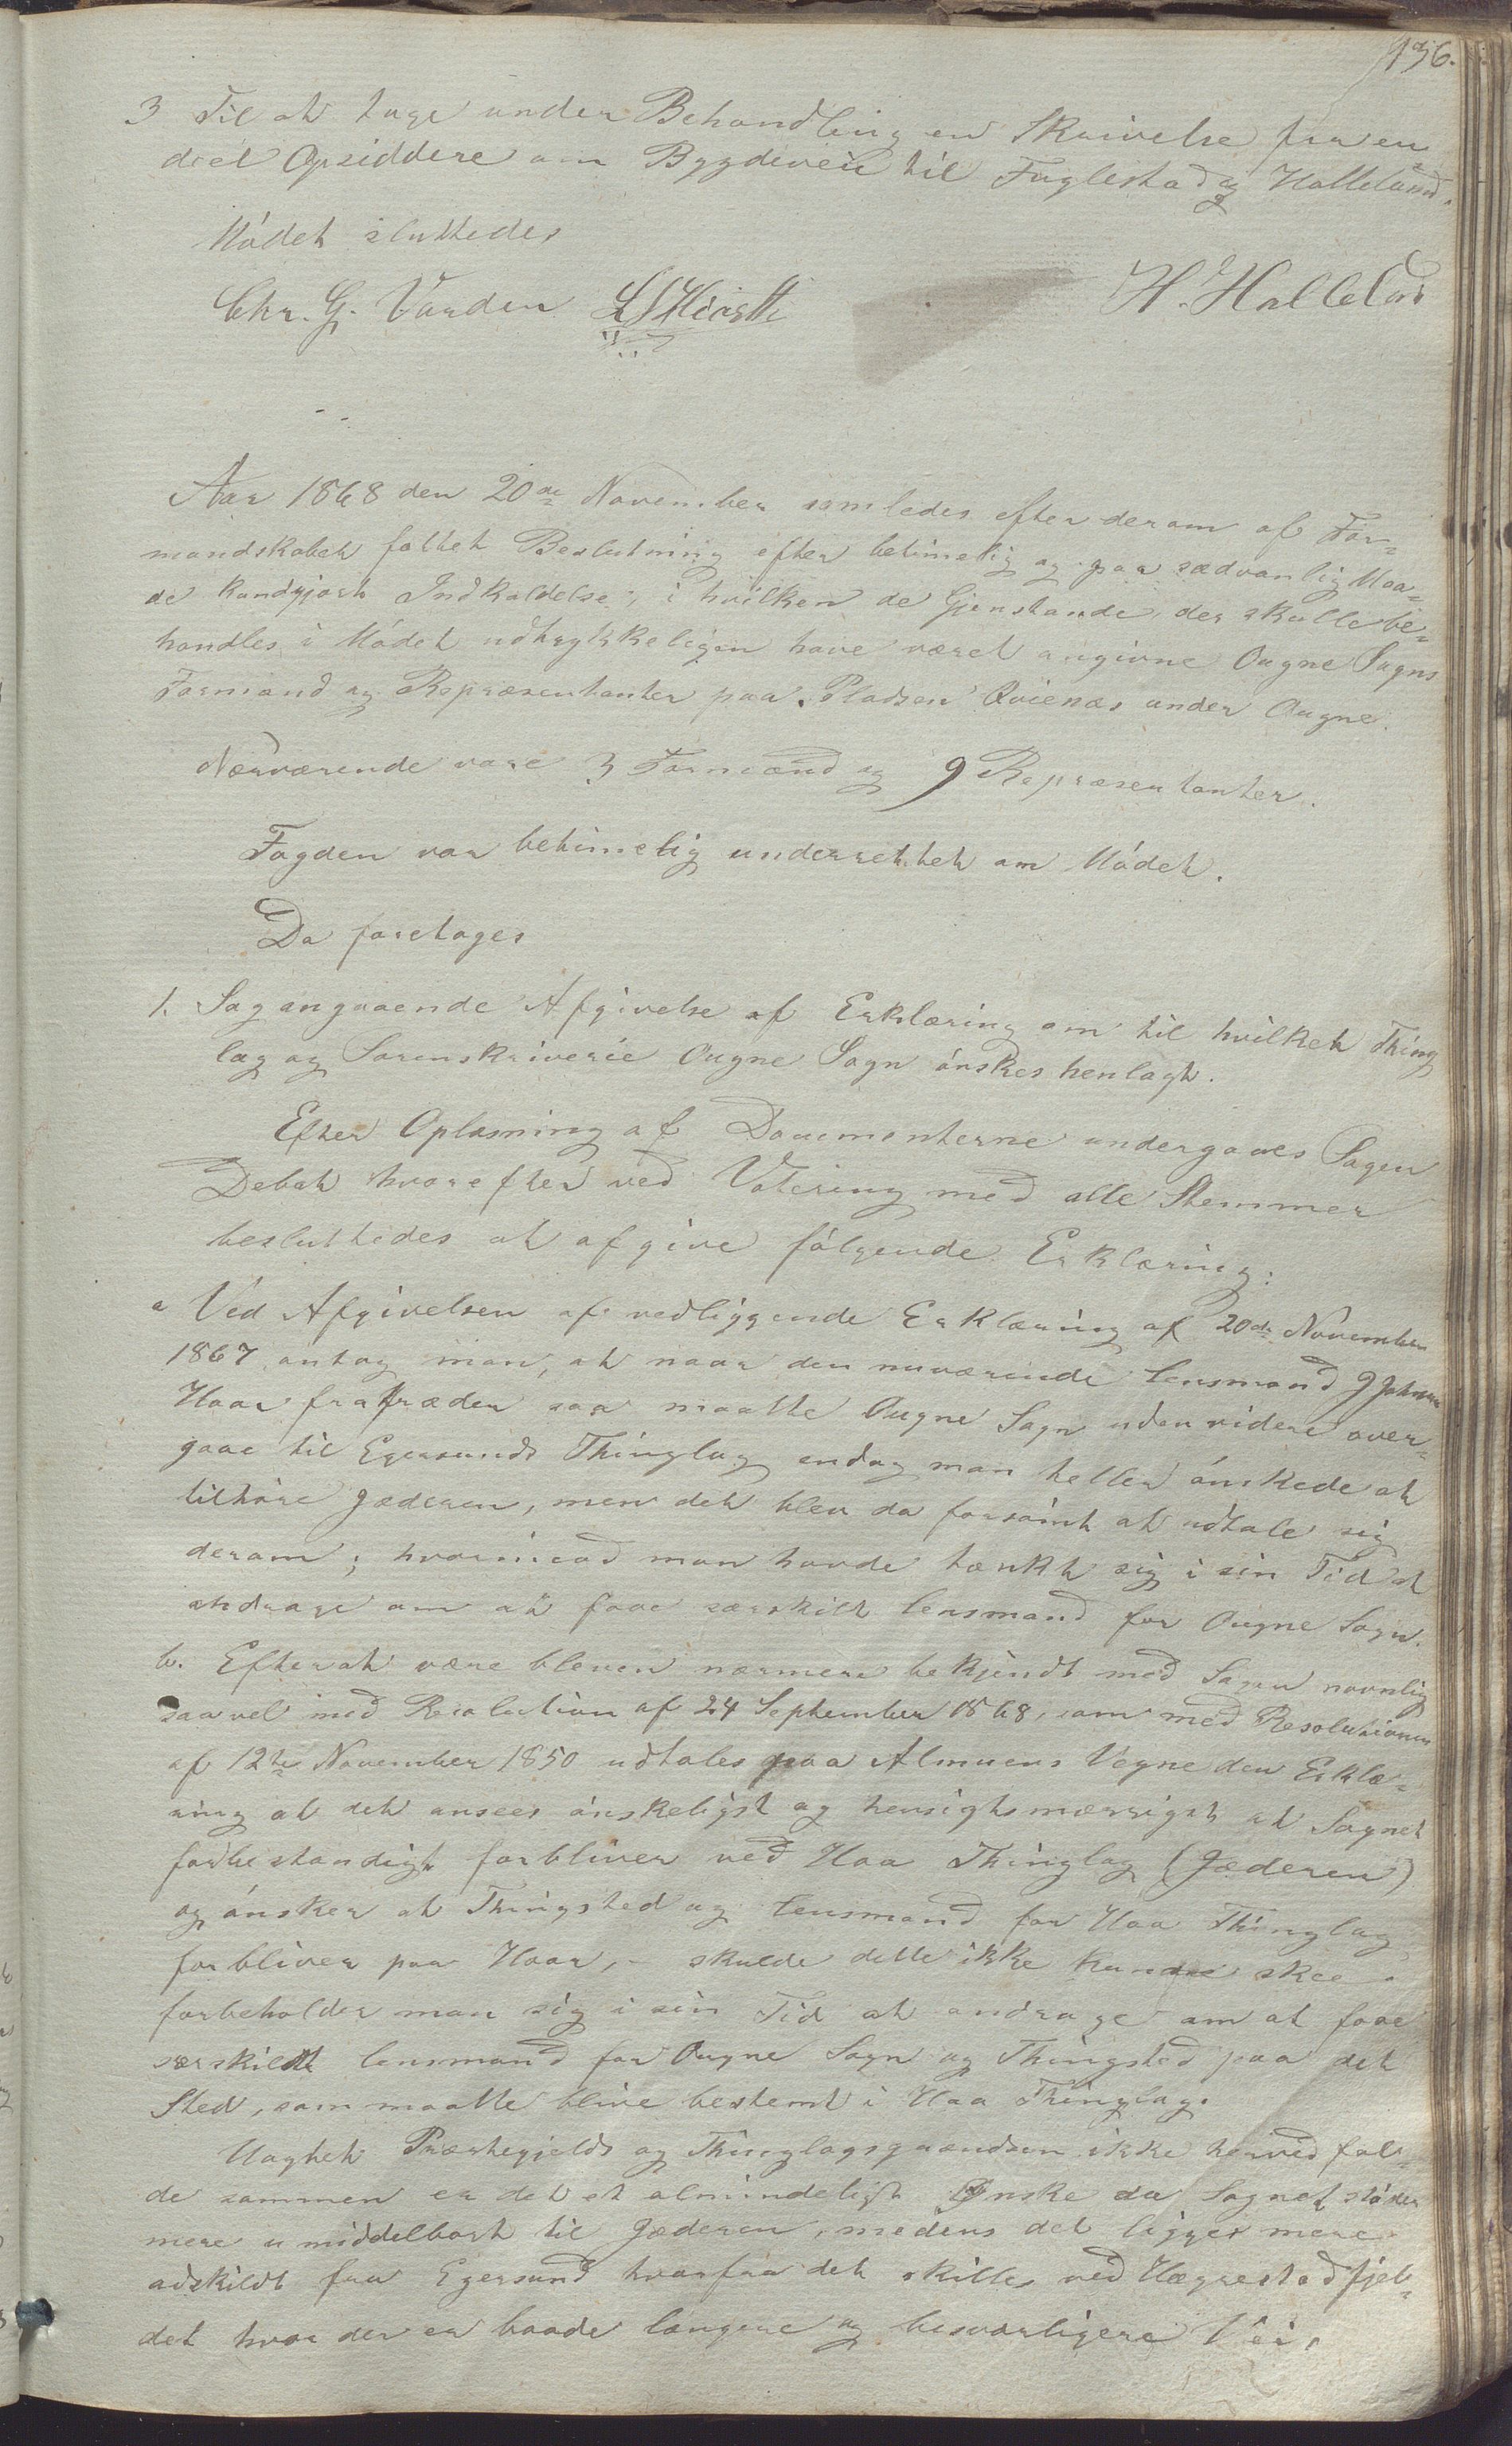 136.
3 Til at tage under Behandling en Skrivelse fra en¬
deel Opsiddere om Bygdeveie til Fuglestad og Halleland.
Mødet sluttedes
Chr. G. Varden H. Halleland
Aar 1868 den 20de November samledes efter derom af For¬
mandskabet fattet Beslutning efter betimelig og paa sædvanlig Maa¬
de kundgjort Indkaldelse, i hvilken de Gjenstande, der skulle be¬
handles i Mødet udtrykkeligen have været angivne Ougne Sogns
Formænd og Repræsentanter paa Pladsen Qvienæs under Ougne.
Nærværende vare 3 Formænd og 9 Repræsentanter.
Fogden var betimelig underrettet om Mødet.
Da foretages
1. Sag angaaende Afgivelse af Erklæring om til hvilket Thing
lag og Sorenskriverie Ougne Sogn ønskes henlagt.
Efter Oplæsning af Documenterne undergaves Sagen
Debat hvorefter ved Votering med alle Stemmer
besluttedes at afgive følgende Erklæring:
a Ved Afgivelsen af vedliggende Erklæring af 20de November
1867 antog man, at naar den nuværende Lensmand G Johnsen
Haar fratræder saa maatte Ougne Sogn uden videre over¬
gaae til Egersunds Thinglag endog man heller ønskede at
tilhøre Jæderen, men det blev da forsømt at udtale sig
derom; hvorimod man havde tænkt sig i sin Tid at
andrage om at faae særskilt Lensmand for Ougne Sogn.
b. Efterat være bleven nærmere bekjendt med Sagen navnlig
saavel med Resolution af 24 September 1868, som med Resolutionen
af 12te November 1850 udtales paa Almuens Vegne den Erklæ¬
ring at det ansees ønskeligst og hensigtsmæssigst at Sognet
fodbestandigt forbliver ved Haa Thinglag (Jæderen)
og ønsker at Thingsted og Lensmand for Haa Thinglag
forbliver paa Haar, – skulde dette ikke kunde skee
forbeholder man sig i sin Tid at andrage om at faae
særskildt Lensmand for Ougne Sogn og Thingsted paa det
Sted, som maatte blive bestemt i Haa Thinglag.
Uagtet Præstegjelds og Thinglagsgrændsen ikke herved fal¬
de sammen er det et almindeligt Ønske da Sognet støder
mere umiddelbart til Jæderen, medens det ligger mere
adskildt fra Egersund hvorfra det skilles ved Hægrestadfjel¬
det hvor der er baade længere og besværligere Vei,